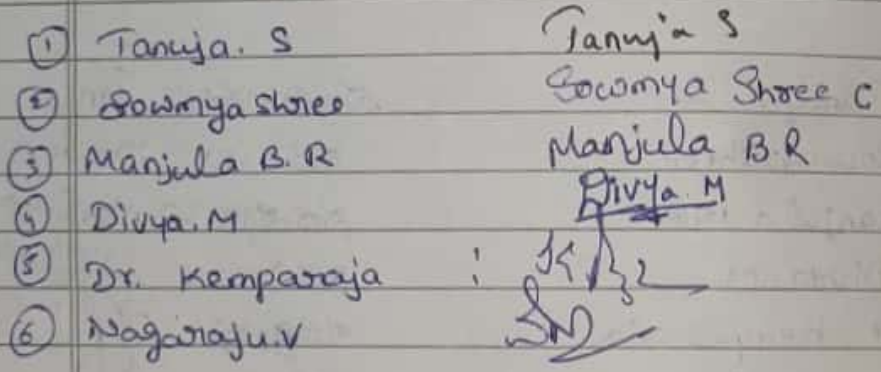 ① Tanuja. S Tanuja S
② Sowmya Shree Socomya Shree C
③ Manjula B. R Manjula B R
④ Divya. M Divya. M
⑤ Dr. Kemparaja :
⑥ Nagaraju. V